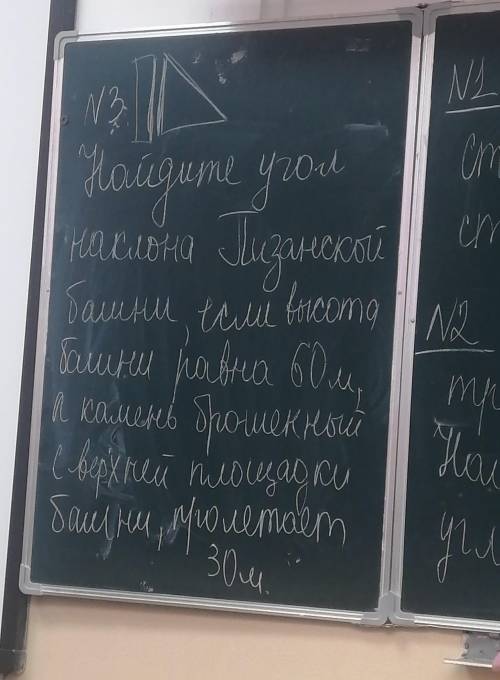 N3.
Найдите угол
наклона Пизанской
башни, если высота
башни равна 60м,
а камень брошенный
с верхней площадки
башни, пролетает
30м.
N1
ст
ст
N2
тр
Най
угл